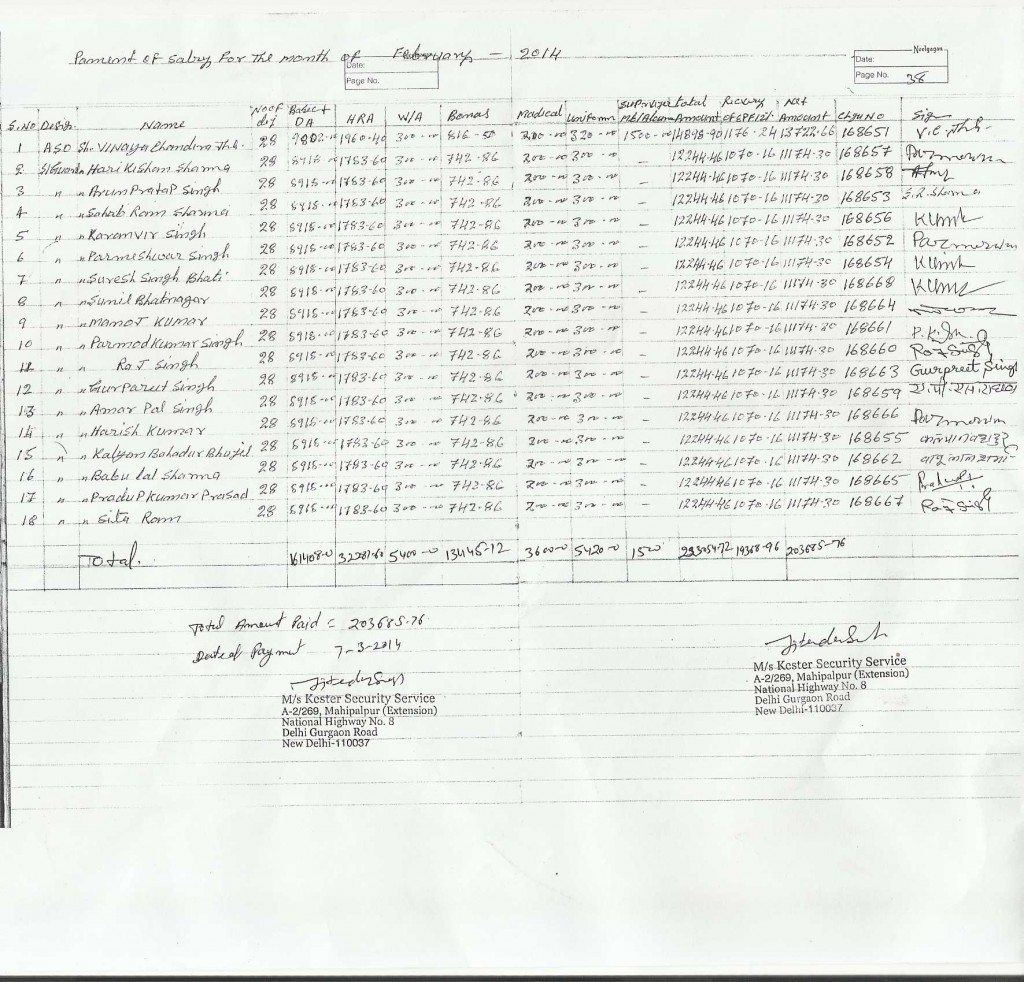 Pament of Salry For The month of February - 2014
Date:
Page No.
Neelgagan
Date:
Page No. 38
S.No Design. Name No of dij Basic + DA HRA W/A Bonas Madical Uniform Supruizer Total Amount Ricvery of EPF 12% Net Amount Chqu No Sig
1 ASO Sh. Vinaya Chandra Jha. 28 9802-00 1960-40 300-00 816-50 200-00 320-00 1500-00 14898-90 1176-24 13722-66 168651 V.C. Jha
2 S/Guard Hari Kishan Sharma 28 8918-00 1783-60 300-00 742-86 200-00 300-00 - 12244-46 1070-16 11174-30 168657
3 " " Arun Pratap Singh 28 8918-00 1783-60 300-00 742-86 200-00 300-00 - 12244-46 1070-16 11174-30 168658
4 " " Sahab Ram Sharma 28 8918-00 1783-60 300-00 742-86 200-00 300-00 - 12244-46 1070-16 11174-30 168653 S.R. Sharma
5 " " Karamvir Singh 28 8918-00 1783-60 300-00 742-86 200-00 300-00 - 12244-46 1070-16 11174-30 168656
6 " " Parmeshwar Singh 28 8918-00 1783-60 300-00 742-86 200-00 300-00 - 12244-46 1070-16 11174-30 168652
7 " " Suresh Singh Bhati 28 8918-00 1783-60 300-00 742-86 200-00 300-00 - 12244-46 1070-16 11174-30 168654
8 " " Sunil Bhatnagar 28 8918-00 1783-60 300-00 742-86 200-00 300-00 - 12244-46 1070-16 11174-30 168668
9 " " Manoj Kumar 28 8918-00 1783-60 300-00 742-86 200-00 300-00 - 12244-46 1070-16 11174-30 168664
10 " " Parmod Kumar Singh 28 8918-00 1783-60 300-00 742-86 200-00 300-00 - 12244-46 1070-16 11174-30 168661 P.K. Singh
11 " Raj Singh 28 8918-00 1783-60 300-00 742-86 200-00 300-00 - 12244-46 1070-16 11174-30 168660
12 " " Gur Pareet Singh 28 8918-00 1783-60 300-00 742-86 200-00 300-00 - 12244-46 1070-16 11174-30 168663 Gurpreet Singh
13 " " Amar Pal Singh 28 8918-00 1783-60 300-00 742-86 200-00 300-00 - 12244-46 1070-16 11174-30 168659
14 " " Harish Kumar 28 8918-00 1783-60 300-00 742-86 200-00 300-00 - 12244-46 1070-16 11174-30 168666
15 " " Kalyan Bahadur Bhujil 28 8918-00 1783-60 300-00 742-86 200-00 300-00 - 12244-46 1070-16 11174-30 168655
16 " " Babu lal Sharma 28 8918-00 1783-60 300-00 742-86 200-00 300-00 - 12244-46 1070-16 11174-30 168662
17 " " Pradup Kumar Prasad 28 8918-00 1783-60 300-00 742-86 200-00 300-00 - 12244-46 1070-16 11174-30 168665
18 " " Sita Ram 28 8918-00 1783-60 300-00 742-86 200-00 300-00 - 12244-46 1070-16 11174-30 168667
Total. 161408-0 32281-60 5400-0 13445-12 3600-0 5420-0 1500 223054-72 19368-96 203685-76
Total Amount Paid = 203685-76
Date of Payment 7-3-2014
M/s Kester Security Service
A-2/269, Mahipalpur (Extension)
National Highway No. 8
Delhi Gurgaon Road
New Delhi-110037
M/s Kester Security Service
A-2/269, Mahipalpur (Extension)
National Highway No. 8
Delhi Gurgaon Road
New Delhi-110037